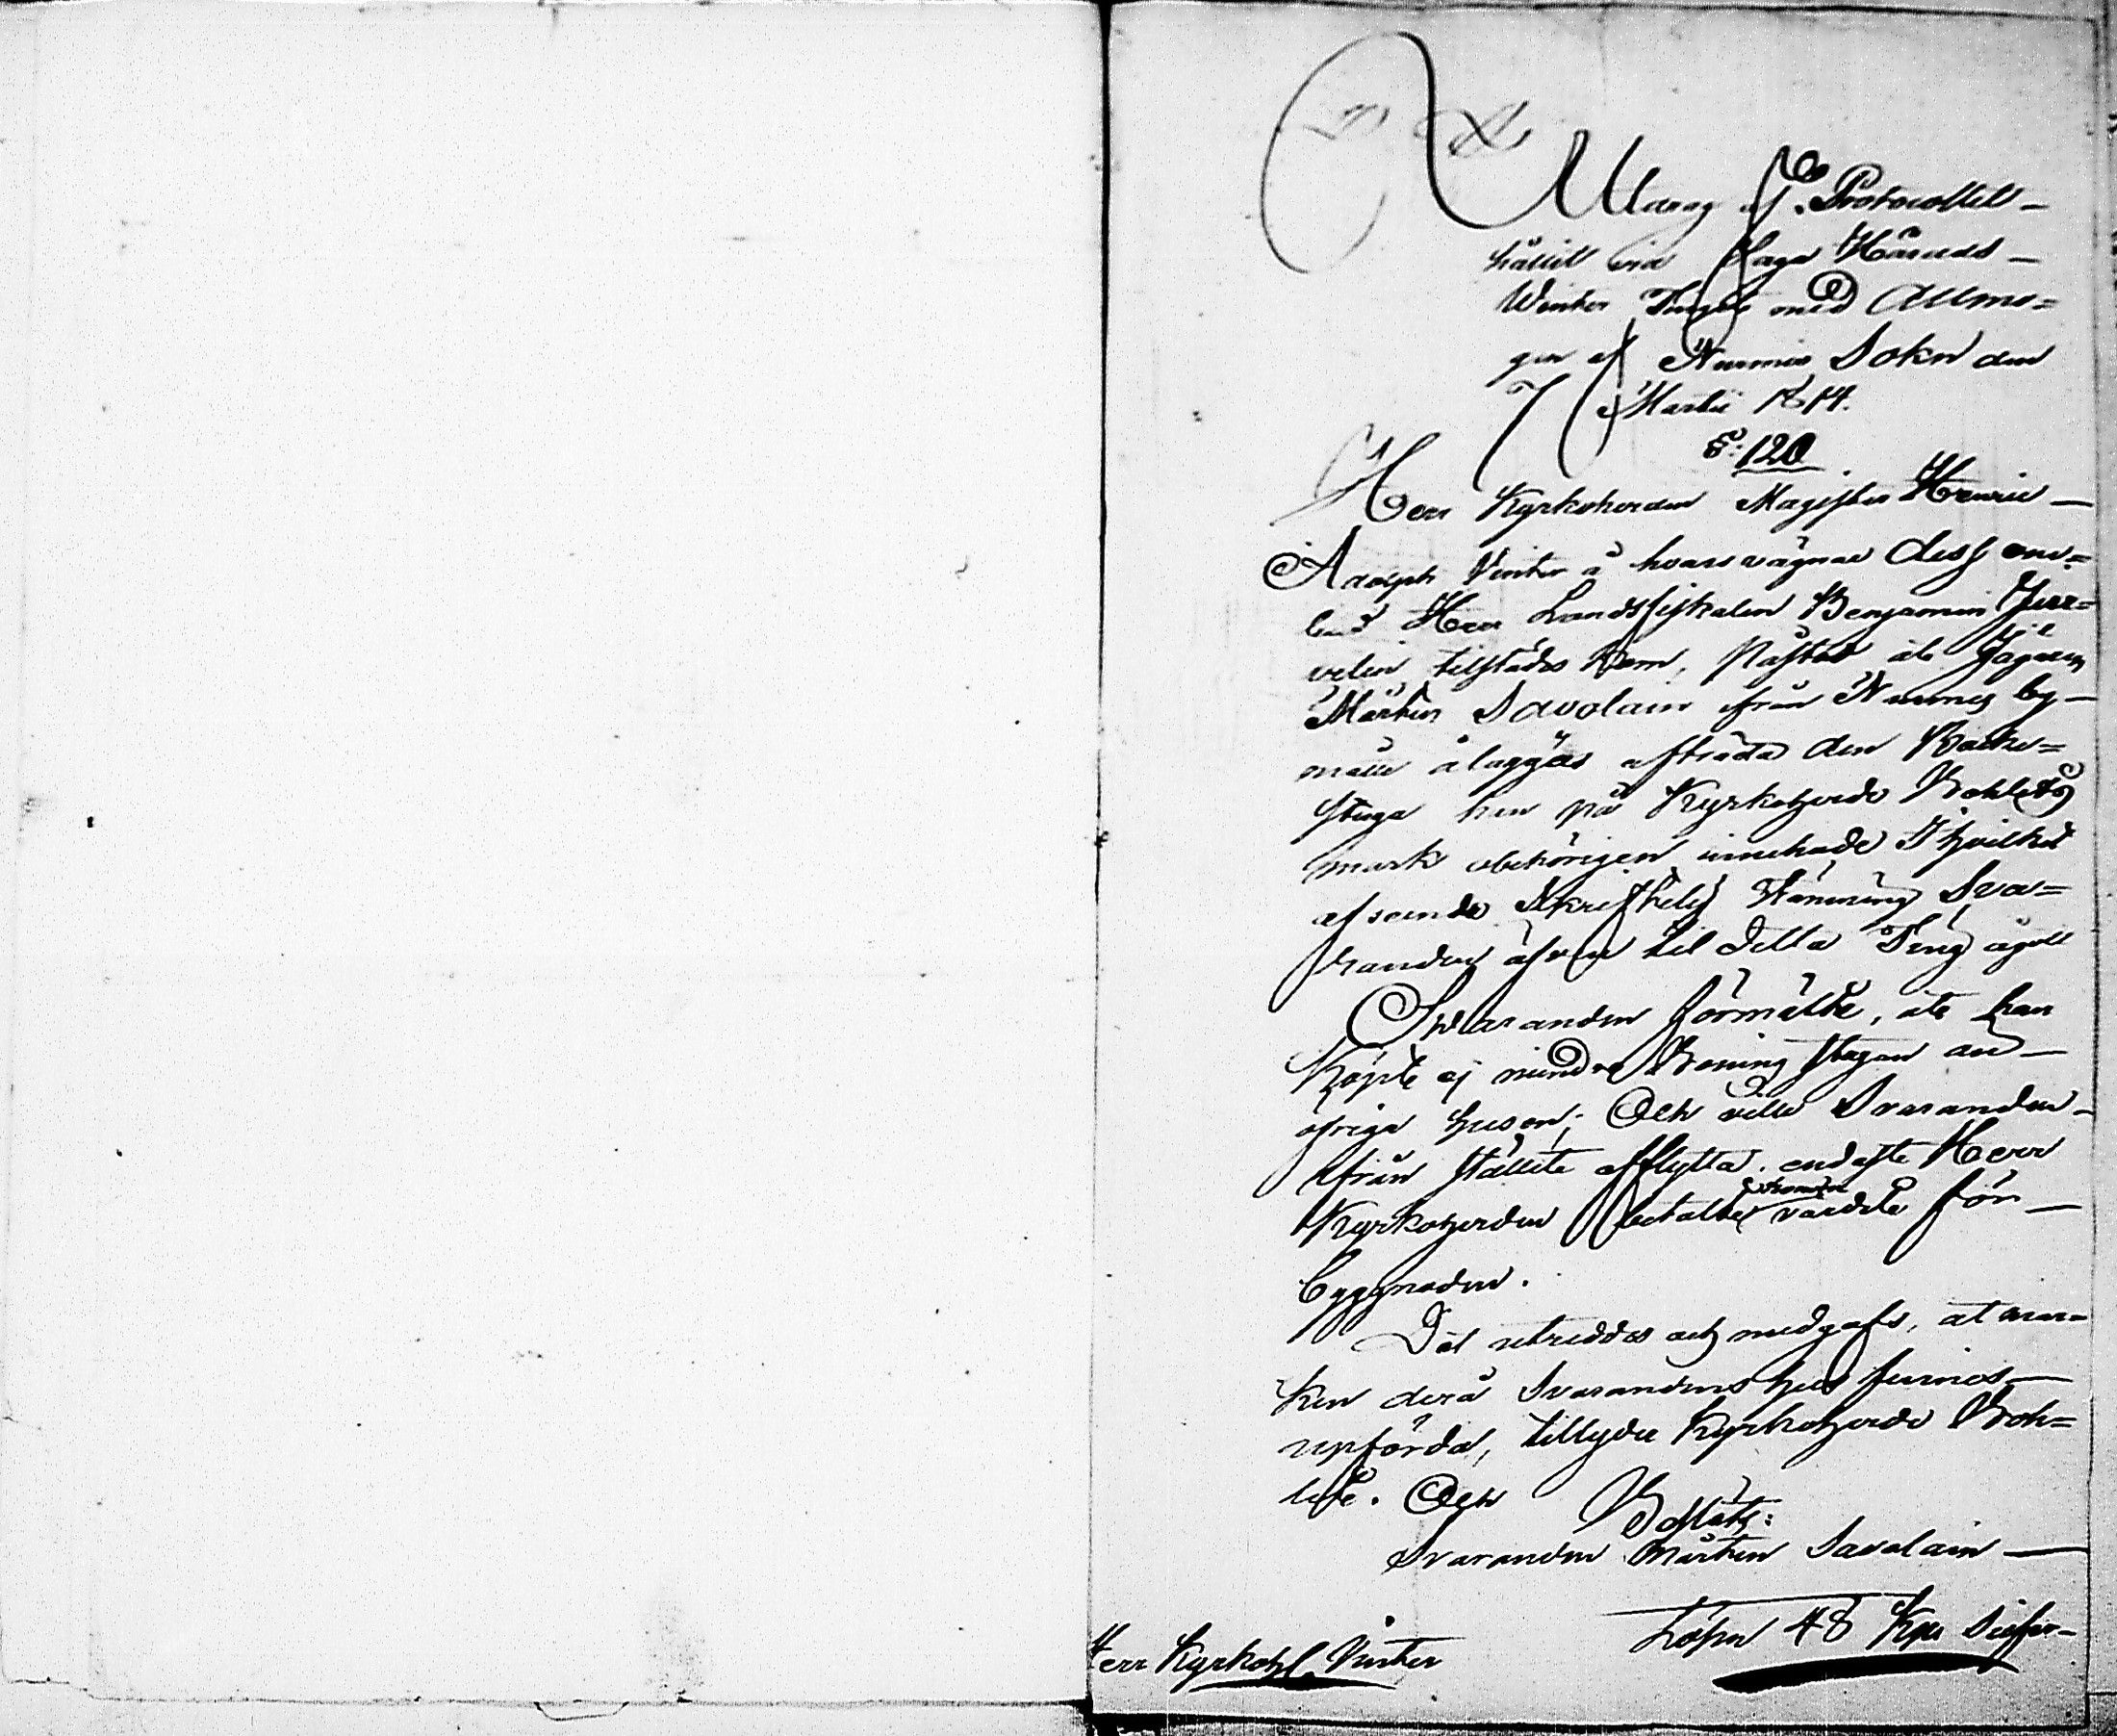 Utdrag af Protocollet
hållit vid Laga Härads
Winter Tinget med Allmo=
gen af Nurmis Sokn den
7 Martii 1814.
§: 120
Herr Kyrkoherden Magister Henric
Adolph Winter å hvars vägnar dess om=
bud Herr Landsfiskalen Benjamin
tilstädes kom, påstod at Jägaren
Mårten Savolain från Nurmis by
måtte åläggas afträda den Backe=
stuga han på Kyrkoherde Bohlets
mark obehörigen innehade I hvilket
afseende Skriftelig Stämning Sva=
randen äfven til detta Ting ägdt
Svaranden förmälte, at han
Köpt ej mindre Boning stugan än
öfriga husen; Och ville Svaranden
från stället afflytta, endast Herr
Kyrkoherden betalte honom värdet för
byggnaden.
Det utreddes och medgafs, at mar=
ken derå Svarandens hus finnes
upförda, tillydde Kyrkoherde Boh=
let. Och Beslöts:
Svaranden Mårten Savolain
Lösen 48 Kop. Silfver
Herr Kyrkoh. Winter